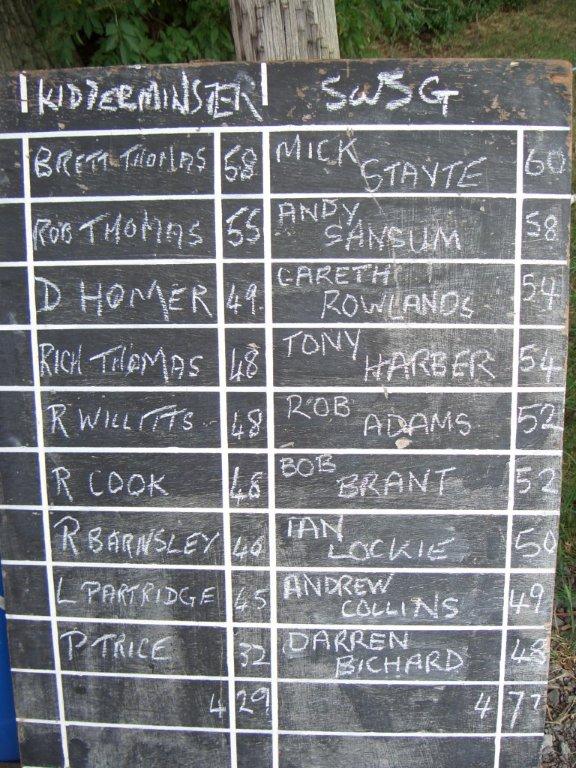 KIDDERMINSTER SWSG
BRETT THOMAS 58 MICK STAYTE 60
ROB THOMAS 55 ANDY SANSUM 58
D HOMER 49 GARETH ROWLANDS 54
RICH THOMAS 48 TONY HARBER 54
R WILLITTS 48 ROB ADAMS 52
R COOK 48 BOB BRANT 52
R BARNSLEY 46 IAN LOCKIE 50
L PARTRIDGE 45 ANDREW COLLINS 49
P TRICE 32 DARREN BICHARD 48
429 477